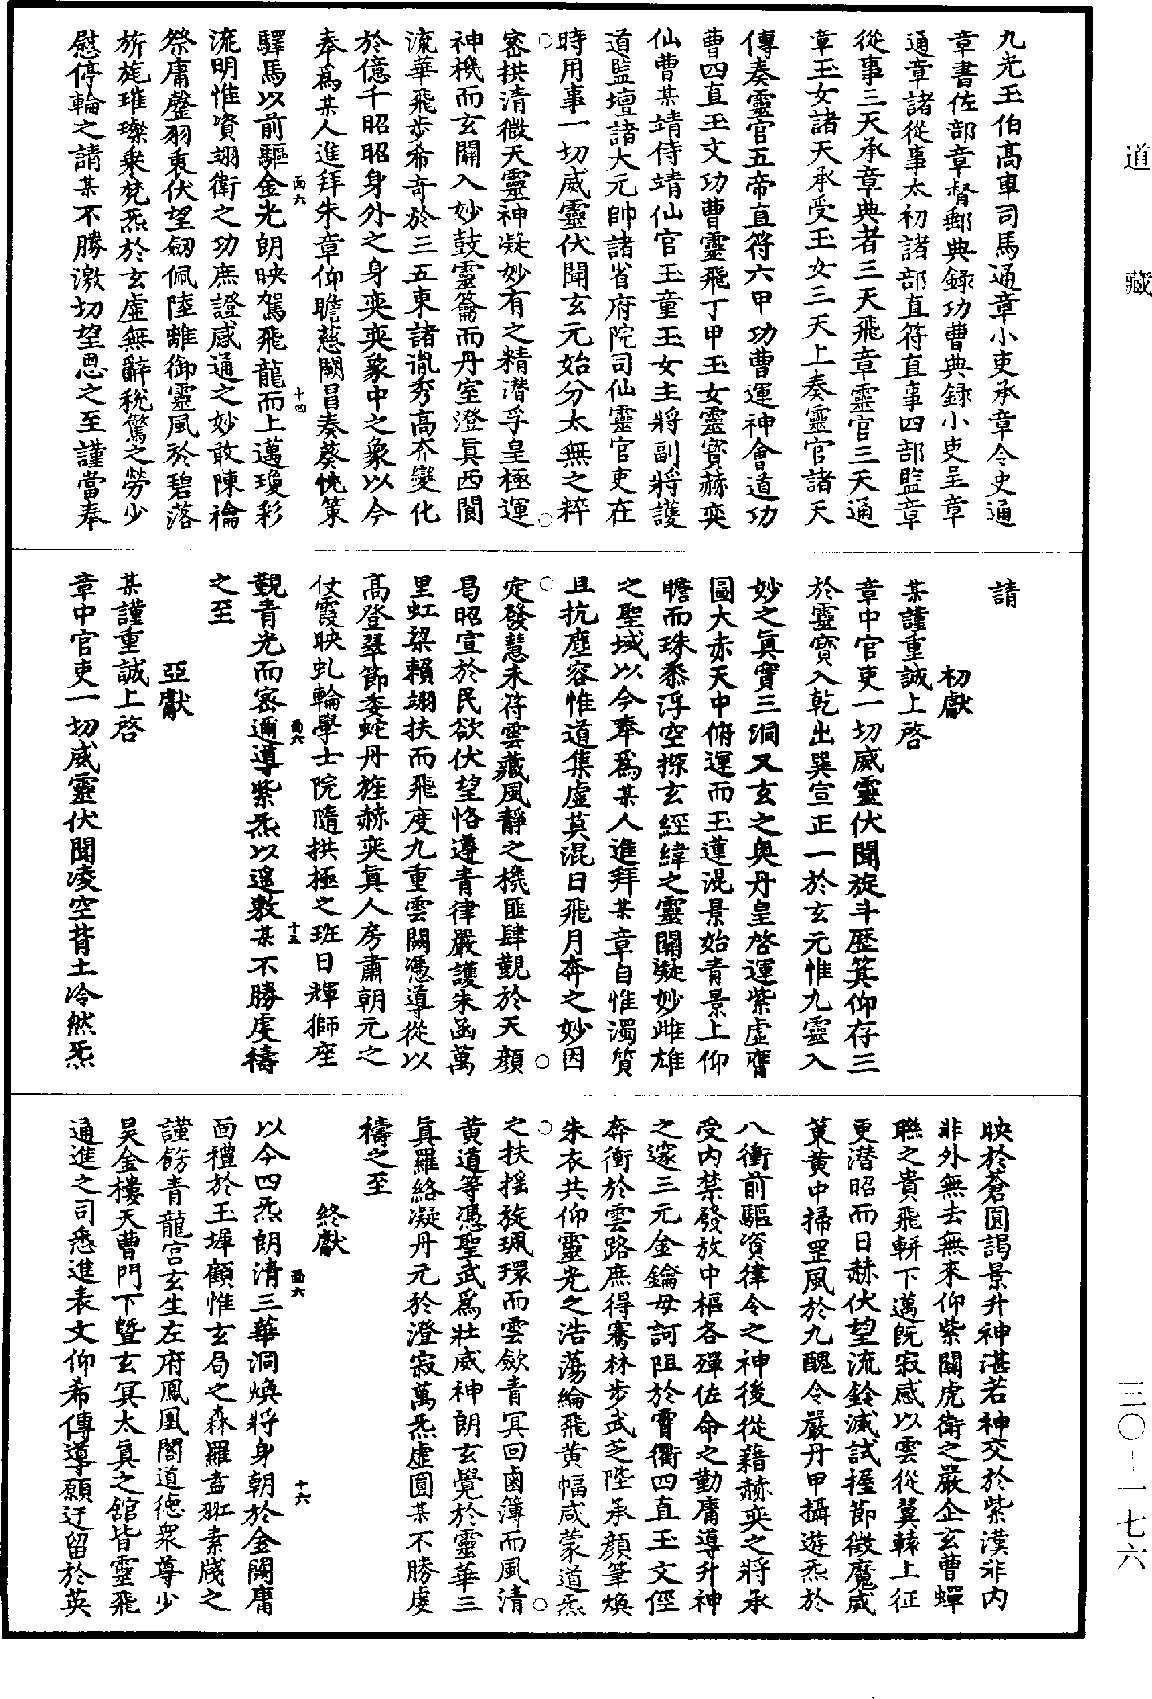 道藏
九光玉伯高車司馬通章小吏承章令史通
章書佐部章督郵典錄功曹典錄小吏呈章
通章諸從事太初諸部直符直事四部監章
從事三天承章典者三天飛章靈官三天通
章玉女諸天承受玉女三天上奏靈官諸天
傳奏靈官五帝直符六甲功曹運神會道功
曹四直玉文功曹靈飛丁甲玉女靈寶赫奕
仙曹某靖侍靖仙官玉童玉女主將副將護
道監壇諸大元帥諸省府院司仙靈官吏在
時用事一切威靈伏聞玄元始分太無之粹
密拱清微天靈神凝妙有之精潛孚皇極運
神機而玄關入妙鼓靈籥而丹室澄真西閬
流華飛步希奇於三五東諸毓秀高夼變化
於億千昭昭身外之身奕奕象中之象以今
奉為某人進拜朱章仰瞻慈闕冒奏葵忱策
驛馬以前驅金光朗映駕飛龍而上邁瓊彩
流明惟資翊衛之功庶證感通之妙敢陳禴
祭庸罄羽衷伏望劒佩陸離御靈風於碧落
旂旄璀璨乘梵炁於玄虛無辭稅駕之勞少
慰停輪之請某不勝激切望恩之至謹當奉
請
初獻
某謹重誠上啓
章中官吏一切威靈伏聞旋斗歷箕仰存三
於靈寶入乾出巽宣正一於玄元惟九靈入
妙之真實三洞又玄之奧丹皇啓運紫虛膺
圖大赤天中俯運而玉蓮混景始青景上仰
瞻而珠黍浮空探玄經緯之靈關凝妙雌雄
之聖域以今奉為某人進拜某章自惟濁質
且抗塵容惟道集虛莫混日飛月奔之妙因
定發慧未符雲藏風靜之機匪肆覲於天顏
曷昭宣於民欲伏望恪遵青律嚴護朱函萬
里虹梁賴翊扶而飛度九重雲闕憑導從以
高登翠節委蛇丹旌赫奕真人房肅朝元之
仗霞映虬輪學士院隨拱極之班日輝獅座
覲青光而密邇導紫炁以遐敷某不勝虔禱
之至
亞獻
某謹重誠上啓
章中官吏一切威靈伏聞凌空背土泠然炁
映於蒼圓謁景升神湛若神交於紫漠非內
非外無去無來仰紫關虎衛之嚴企玄曹蟬
聯之貴飛軿下邁既寂感以雲從翼轅上征
更潛昭而日赫伏望流鈴滅試握節徵魔咸
策黃中掃罡風於九醜令嚴丹甲攝遊炁於
八衝前驅資律令之神後從藉赫奕之將承
受內禁發放中樞各殫佐命之勤庸導升神
之邃三元金鑰毋訶阻於霄衢四直玉文徑
奔衝於雲路庶得騫林步武芝陛承顏筆煥
朱衣共仰靈光之浩蕩綸飛黃幅咸蒙道炁
之扶搖旋珮環而雲歛青冥回鹵簿而風清
黃道等憑聖武為壯威神朗玄覺於靈華三
真羅絡凝丹元於澄寂萬炁虛圓某不勝虔
禱之至
終獻
以今四炁朗清三華洞煥將身朝於金闕庸
面禮於玉墀顧惟玄局之森羅盍掫素牋之
謹飭青龍宫玄生左府鳳凰閣道德衆尊少
吳金樓天曹門下暨玄冥太真之舘皆靈飛
通進之司悉進表文仰希傳導願迂留於英
面六
十四
面六
十五
面六
十六
三〇—一七六